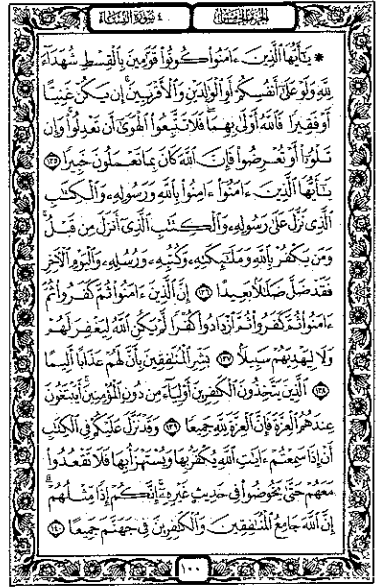 الجزء الخامس
٤ سورة النساء
* يَٰٓأَيُّهَا ٱلَّذِينَ ءَامَنُوا۟ كُونُوا۟ قَوَّٰمِينَ بِٱلْقِسْطِ شُهَدَآءَ
لِلَّهِ وَلَوْ عَلَىٰٓ أَنفُسِكُمْ أَوِ ٱلْوَٰلِدَيْنِ وَٱلْأَقْرَبِينَ ۚ إِن يَكُنْ غَنِيًّا
أَوْ فَقِيرًا فَٱللَّهُ أَوْلَىٰ بِهِمَا ۖ فَلَا تَتَّبِعُوا۟ ٱلْهَوَىٰٓ أَن تَعْدِلُوا۟ ۚ وَإِن
تَلْوُۥٓا۟ أَوْ تُعْرِضُوا۟ فَإِنَّ ٱللَّهَ كَانَ بِمَا تَعْمَلُونَ خَبِيرًا ١٣٥
يَٰٓأَيُّهَا ٱلَّذِينَ ءَامَنُوٓا۟ ءَامِنُوا۟ بِٱللَّهِ وَرَسُولِهِۦ وَٱلْكِتَٰبِ
ٱلَّذِى نَزَّلَ عَلَىٰ رَسُولِهِۦ وَٱلْكِتَٰبِ ٱلَّذِىٓ أَنزَلَ مِن قَبْلُ ۚ
وَمَن يَكْفُرْ بِٱللَّهِ وَمَلَٰٓئِكَتِهِۦ وَكُتُبِهِۦ وَرُسُلِهِۦ وَٱلْيَوْمِ ٱلْءَاخِرِ
فَقَدْ ضَلَّ ضَلَٰلًۢا بَعِيدًا ١٣٦ إِنَّ ٱلَّذِينَ ءَامَنُوا۟ ثُمَّ كَفَرُوا۟ ثُمَّ
ءَامَنُوا۟ ثُمَّ كَفَرُوا۟ ثُمَّ ٱزْدَادُوا۟ كُفْرًا لَّمْ يَكُنِ ٱللَّهُ لِيَغْفِرَ لَهُمْ
وَلَا لِيَهْدِيَهُمْ سَبِيلًۢا ١٣٧ بَشِّرِ ٱلْمُنَٰفِقِينَ بِأَنَّ لَهُمْ عَذَابًا أَلِيمًا
١٣٨ ٱلَّذِينَ يَتَّخِذُونَ ٱلْكَٰفِرِينَ أَوْلِيَآءَ مِن دُونِ ٱلْمُؤْمِنِينَ ۚ أَيَبْتَغُونَ
عِندَهُمُ ٱلْعِزَّةَ فَإِنَّ ٱلْعِزَّةَ لِلَّهِ جَمِيعًا ١٣٩ وَقَدْ نَزَّلَ عَلَيْكُمْ فِى ٱلْكِتَٰبِ
أَنْ إِذَا سَمِعْتُمْ ءَايَٰتِ ٱللَّهِ يُكْفَرُ بِهَا وَيُسْتَهْزَأُ بِهَا فَلَا تَقْعُدُوا۟
مَعَهُمْ حَتَّىٰ يَخُوضُوا۟ فِى حَدِيثٍ غَيْرِهِۦٓ ۚ إِنَّكُمْ إِذًا مِّثْلُهُمْ ۗ
إِنَّ ٱللَّهَ جَامِعُ ٱلْمُنَٰفِقِينَ وَٱلْكَٰفِرِينَ فِى جَهَنَّمَ جَمِيعًا ١٤٠
١٠٠